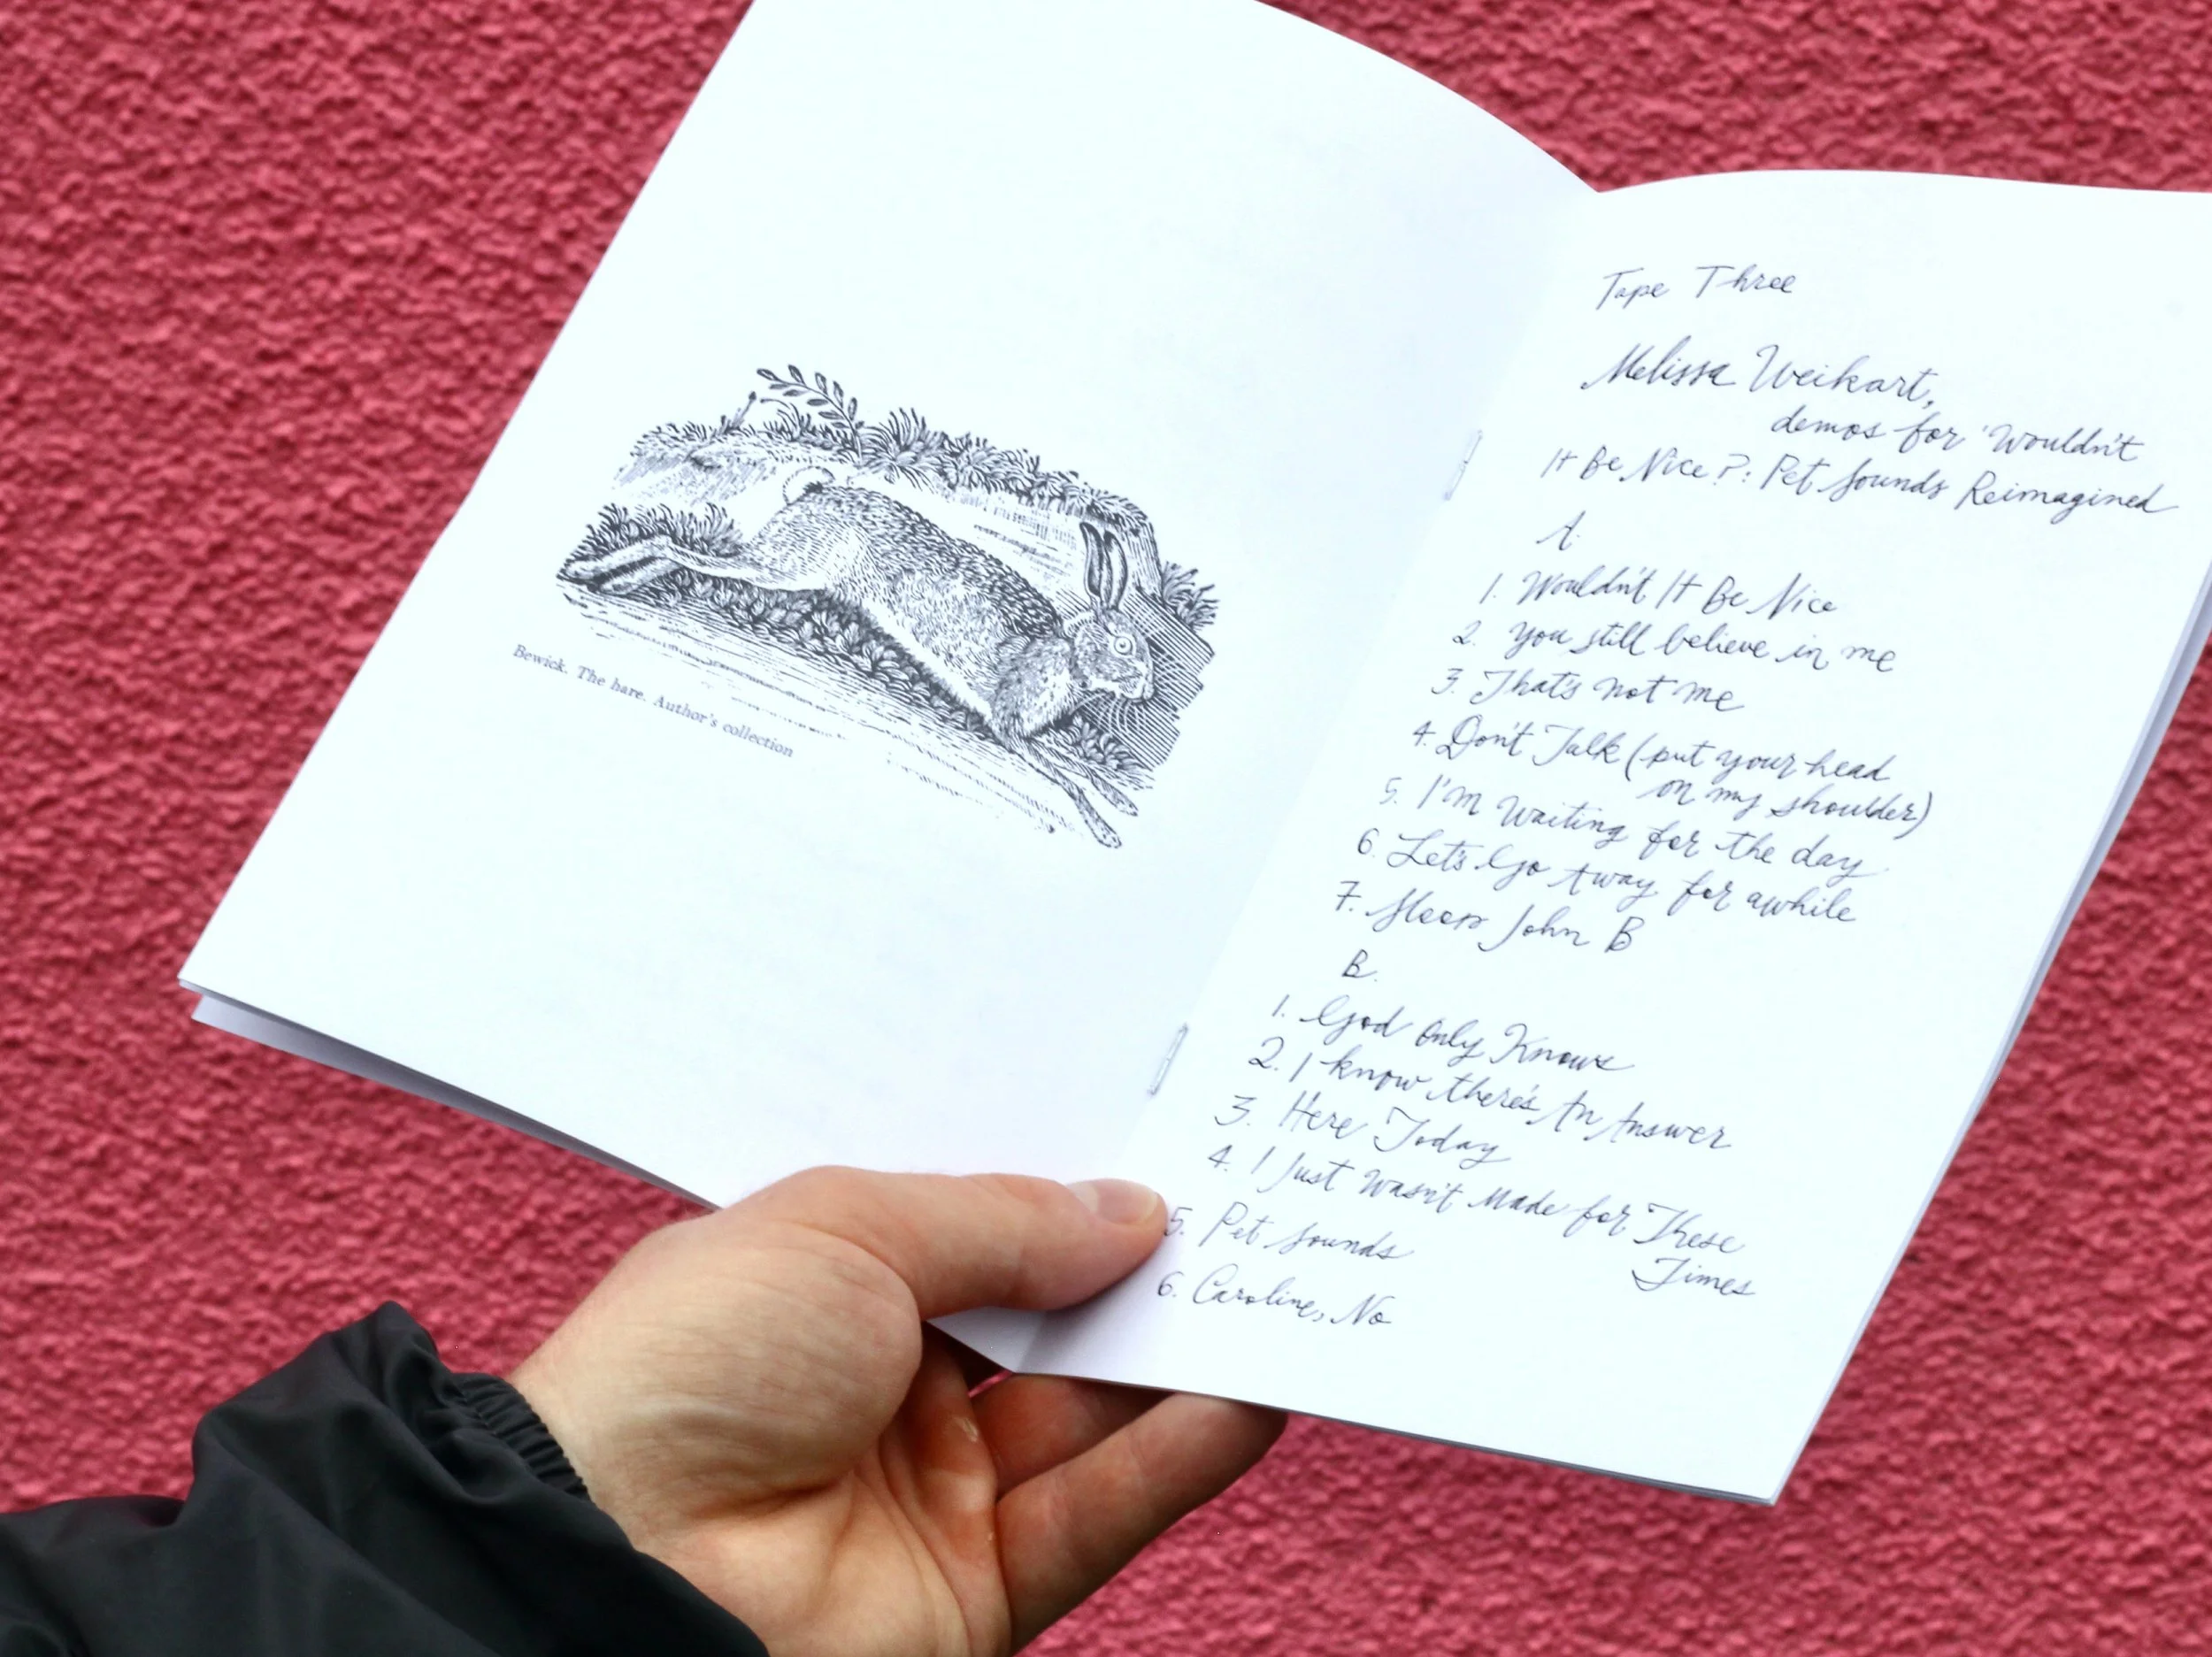 Bewick. The hare. Author's collection
Tape Three
Melissa Weikart,
demos for 'Wouldn't
It Be Nice?: Pet Sounds Reimagined
A.
1. Wouldn't It Be Nice
2. You still believe in me
3. That's not me
4. Don't Talk (put your head
on my shoulder)
5. I'm Waiting for the day
6. Let's Go Away for awhile
7. Sloop John B
B.
1. God Only Knows
2. I know there's An Answer
3. Here Today
4. I Just Wasn't Made for These
Times
5. Pet Sounds
6. Caroline, No